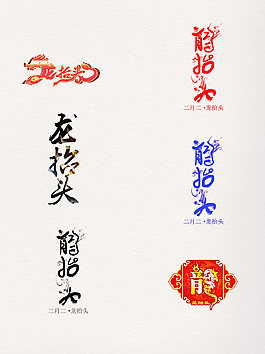 龙抬头
龍抬头
二月二·龙抬头
龙抬头
龍抬头
二月二·龙抬头
龍抬头
二月二·龙抬头
龍
龙抬头